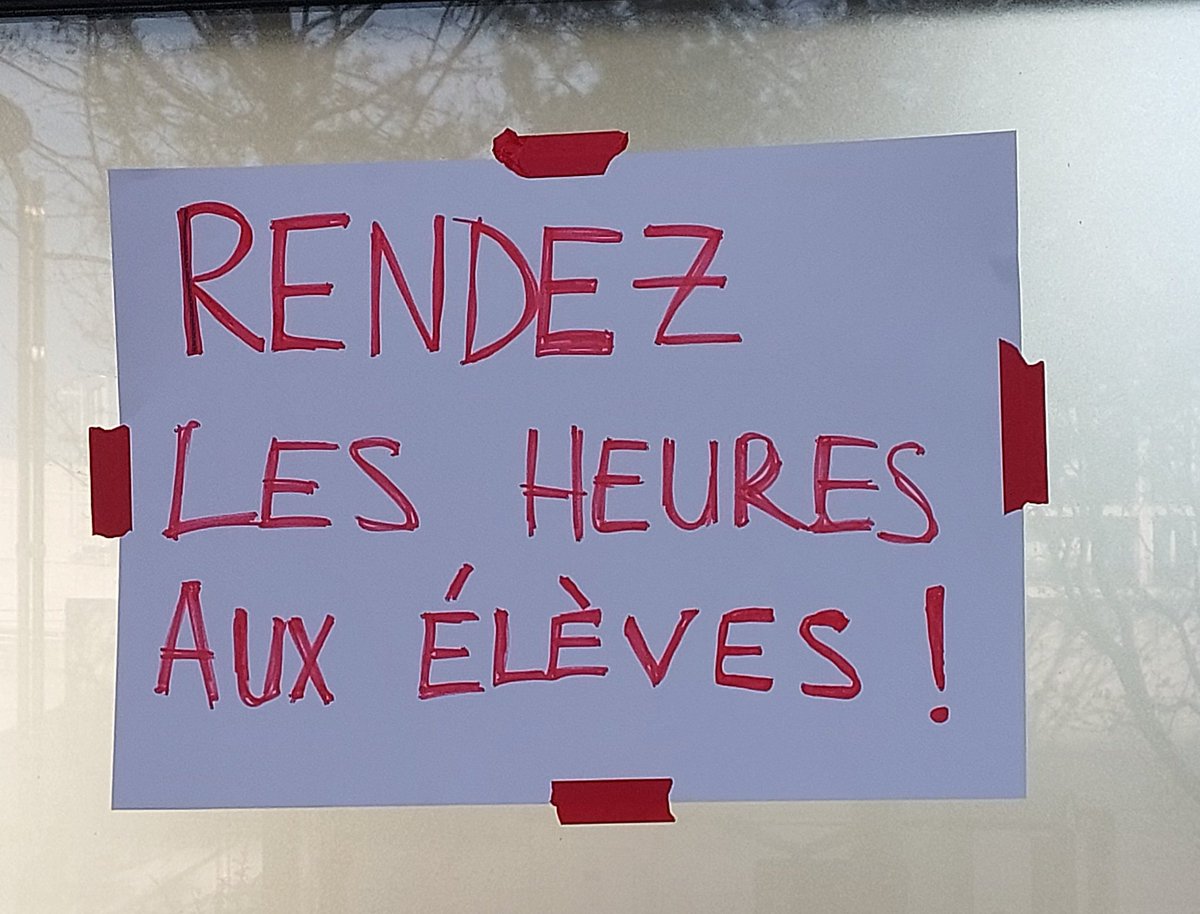 RENDEZ
LES HEURES
AUX ÉLÈVES !